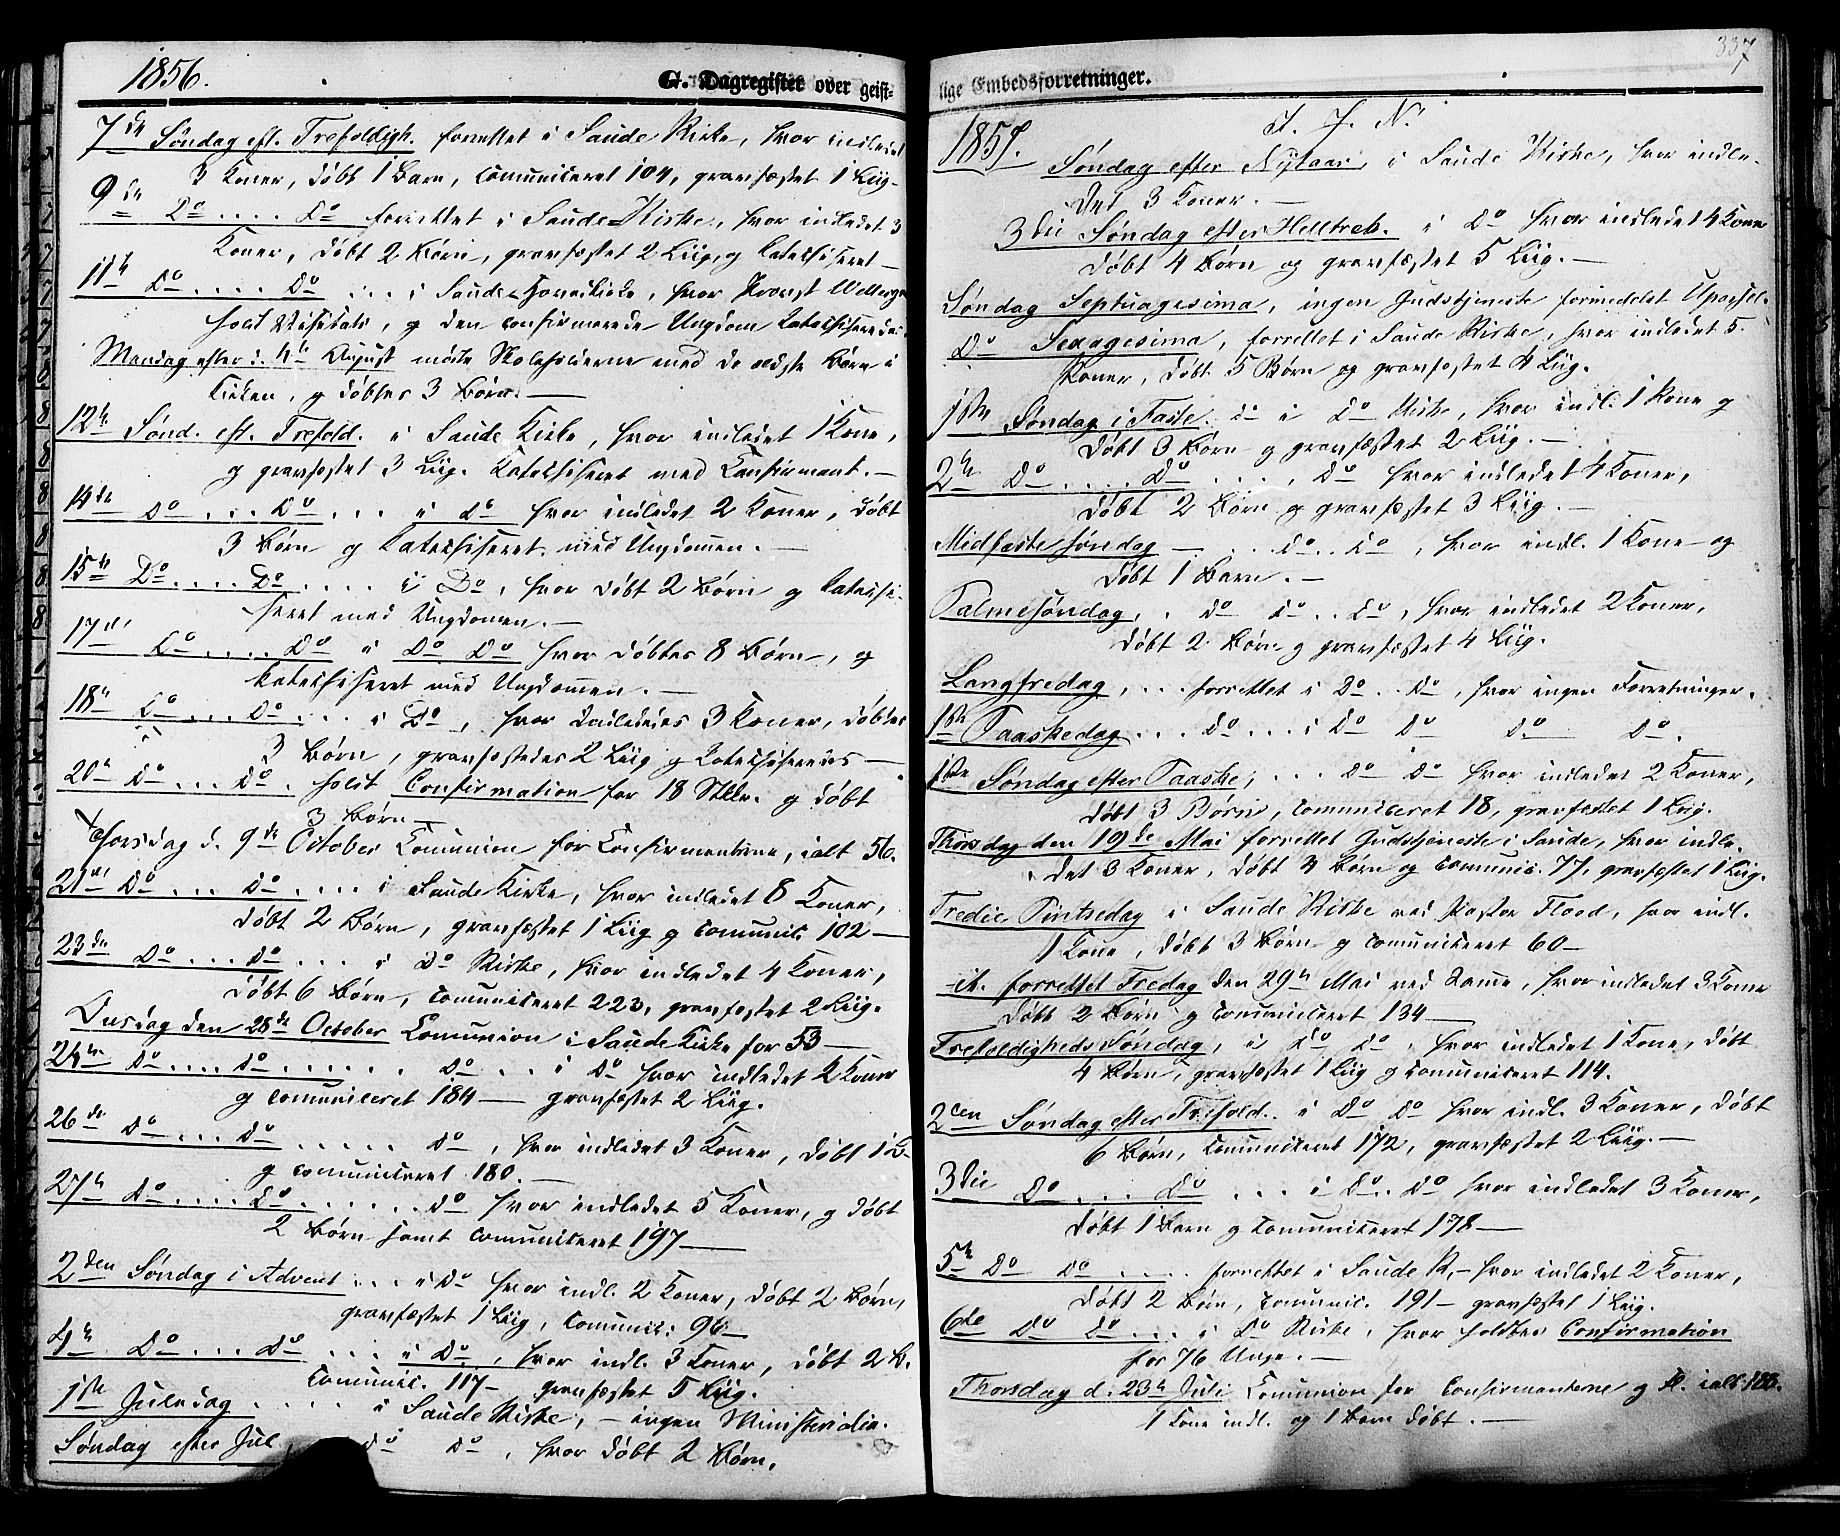 1856.
G. Dagregister over geist-
7de Søndag eft. Trefoldigh. forrettet i Saude Kirke, hvor indledet
3 Koner, døbt 1 Barn, Communiceret 104, gravfæstet 1 Liig.
9de Do .... Do forrettet i Saude Kirke, hvor indledet 3
Koner, døbt 2 Børn, gravfæstet 2 Liig, og Catechiseret —
11te Do .... Do ... i Saude Hoved Kirke, hvor Provst
holdt Visitats, og den confirmerede Ungdom Katechiseredes.
Mandag efter d. August mødte Skoleholderne med de ældste Børn i
Kirken, og døbtes 3 Børn. —
12te Sønd. eft. Trefold. i Saude Kirke, hvor indledet 1 Kone,
og gravfæstet 3 Liig. Katechiseret med Confirmant. —
14de Do ... Do ... i do hvor indledet 2 Koner, døbt
3 Børn og Katechiseret med Ungdommen. —
15de Do .... Do .... i Do, hvor døbt 2 Børn og Catechi-
seret med Ungdomen. —
17de Do .... Do i Do Do hvor døbtes 8 Børn, og
Katechiseret med Ungdommen. —
18de Do ... Do ... i Do, hvor Indlededes 3 Koner, døbtes
3 Børn, gravfæstedes 2 Liig og Katechiseredes —
20de Do ... Do. holdt Confirmation for 18 Stkkr. og døbt
3 Børn —
Torsdag d. 9de October Communion for Confirmanterne, ialt 56.
21de Do ... Do .... i Saude Kirke, hvor indledet 8 Koner,
døbt 2 Børn, gravfæstet 1 Liig og Comunic. 102 —
23de Do ... do ... i Do Kirke, hvor indledet 4 Koner,
døbt 6 Børn, Comuniceret 223, gravfæstet 2 Liig.
Onsdag den 28de October Comunion i Saude Kirke for 53 —
24de Do .... do ...... Do .. i Do hvor indledet 2 Koner
og comuniceret 184 — gravfæstet 2 Liig.
26de Do ... Do ..... Do, hvor indledet 3 Koner, døbt 1 B.
og comuniceret 180. —
27de Do .... Do ...... Do hvor indledet 5 Koner, og døbt
2 Børn samt comuniceret 197 —
2den Søndag i Advent ... i Do hvor indl. 2 Koner, døbt 2 Børn,
gravfæstet 1 Liig, Comunic: 96 —
4de Do ... Do ... i Do, hvor indl. 3 Koner, døbt 2 B.
Comunic. 117 — gravfæstet 5 Liig.
1ste Juledag .... i Saude Kirke, — ingen Ministerialia.
Søndag efter Jul, do Do, hvor døbt 2 Børn.
337
lige Embedsforretninger.
I. J. N.
1857.
Søndag efter Nytaar, i Saude Kirke, hvor indle-
det 3 Koner. —
3die Søndag efter Helltrek. i Do hvor indledet 4 Koner
døbt 4 Børn og gravfæstet 5 Liig. —
Søndag Septuagesima, ingen Gudstjeneste formedelst Upassel.
Do Sexagesima, forrettet i Saude Kirke, hvor indledet 5
Koner, døbt 5 Børn og gravfæstet 4 Liig.
1ste Søndag i Faste. do i Do Kirke, hvor indl. 1 Kone og
døbt 3 Børn og gravfæstet 2 Liig. —
2den Do .... Do ...., Do hvor indledet 4 Koner,
døbt 2 Børn og gravfæstet 3 Liig. —
Midfaste Søndag — ... Do .. Do, hvor indl. 1 Kone og
døbt 1 Barn. —
Palmesøndag .. Do Do .. Do, hvor indledet 2 Koner,
døbt 2 Børn og gravfæstet 4 Liig.
Langfredag, ... forrettet i Do .. Do, hvor ingen Forretninger.
1ste Paaskedag ... Do ... i Do Do Do Do.
1ste Søndag efter Paaske, ... Do Do hvor indledet 2 Koner,
døbt 3 Børn, Communiceret 18, gravfæstet 1 Liig.
Thorsdag den 19de Mai forrettet Gudstjeneste i Saude, hvor indle-
det 3 Koner, døbt 4 Børn og Comunic. 77, gravfæstet 1 Liig.
Tredie Pintsedag i Saude Kirke ved Pastor Flood, hvor indl.
1 Kone, døbt 3 Børn og Comuniceret 60 —
it. forrettet Fredag den 29de Mai ved Samme, hvor indledet 3 Koner
døbt 2 Børn og comuniceret 134 —
Trefoldigheds Søndag, i Do Do, hvor indledet 1 Kone, døbt
4 Børn, gravfæstet 1 Liig og comuniceret 114.
2den Søndag efter Trefold. i Do Do hvor indl. 3 Koner, døbt
6 Børn, Comuniceret 172, gravfæstet 2 Liig. —
3die Do ... Do ... i Do .. Do hvor indledet 3 Koner,
døbt 1 Barn og Comuniceret 178 —
5te Do Do .... forrettet i Saude K. — hvor indledet 2 Koner,
døbt 2 Børn, Comunic. 191 — gravfæstet 1 Liig.
6te Do Do ... i Do Kirke, hvor holdtes Confirmation
for 76 Unge. —
Thorsdag d. 23de Juli Comunion for Confirmanterne og Fl. ialt
1 Kone indl. og 1 Barn døbt. —